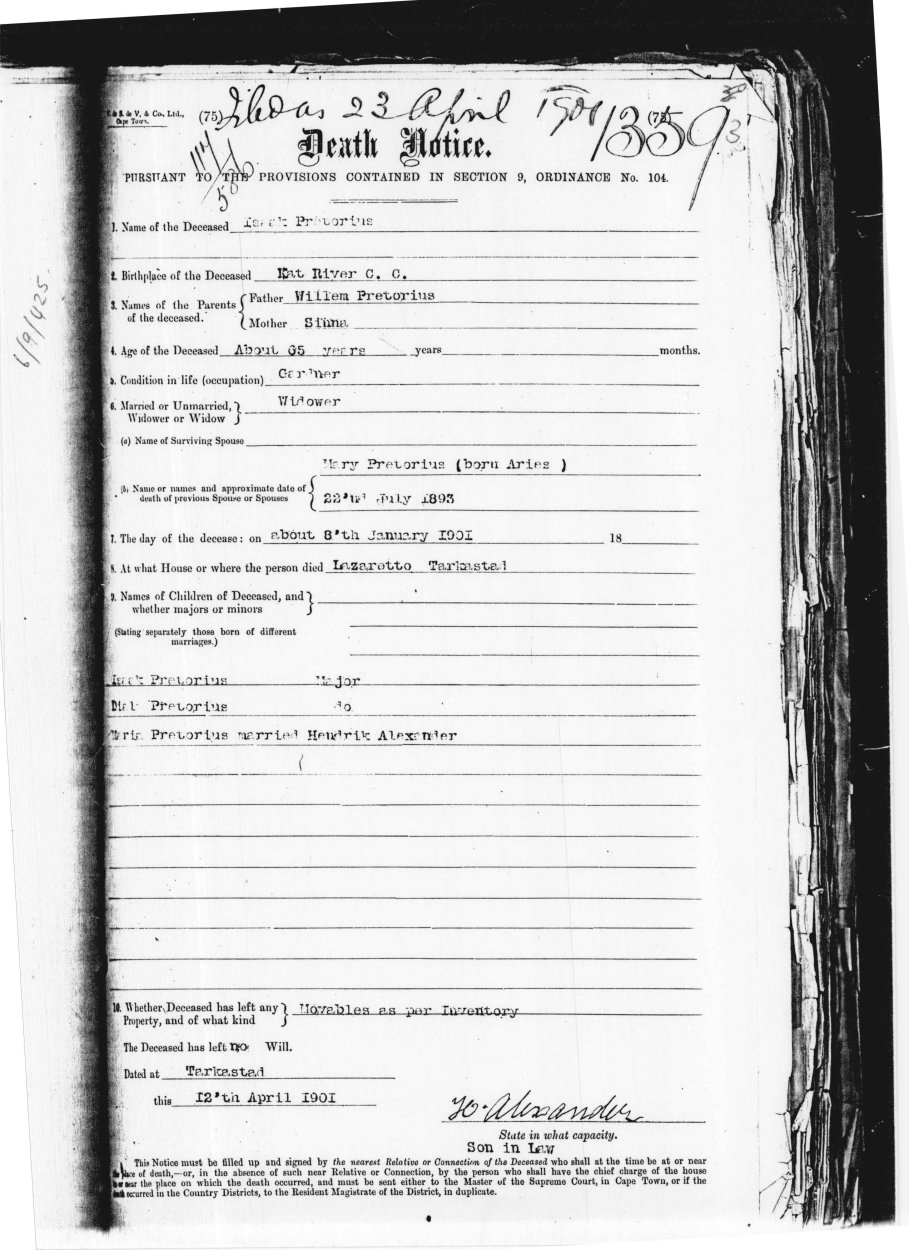 S. de V. & Co., Ltd.,
Cape Town.
(75) Filed as 23 April 1901
1359
Death Notice.
PURSUANT TO THE PROVISIONS CONTAINED IN SECTION 9, ORDINANCE No. 104.
6/9/425
1. Name of the Deceased Isaak Pretorius
2. Birthplace of the Deceased Kat River C. C.
3. Names of the Parents of the deceased. Father Willem Pretorius
Mother Sinna
4. Age of the Deceased About 65 years years months.
5. Condition in life (occupation) Gardner
6. Married or Unmarried, Widower or Widow Widower
(a) Name of Surviving Spouse
Mary Pretorius (born Aries )
(b) Name or names and approximate date of death of previous Spouse or Spouses
22'nd July 1893
7. The day of the decease: on about 8'th January I90I 18
8. At what House or where the person died Lazaretto Tarkastad
9. Names of Children of Deceased, and whether majors or minors
(Stating separately those born of different marriages.)
Isaak Pretorius Major
Pretorius do
Maria Pretorius married Hendrik Alexander
10. Whether Deceased has left any Property, and of what kind Movables as per Inventory
The Deceased has left no Will.
Dated at Tarkastad
this I2'th April I90I
H. Alexander
State in what capacity.
Son in Law
This Notice must be filled up and signed by the nearest Relative or Connection of the Deceased who shall at the time be at or near
the place of death,—or, in the absence of such near Relative or Connection, by the person who shall have the chief charge of the house
or near the place on which the death occurred, and must be sent either to the Master of the Supreme Court, in Cape Town, or if the
death occurred in the Country Districts, to the Resident Magistrate of the District, in duplicate.